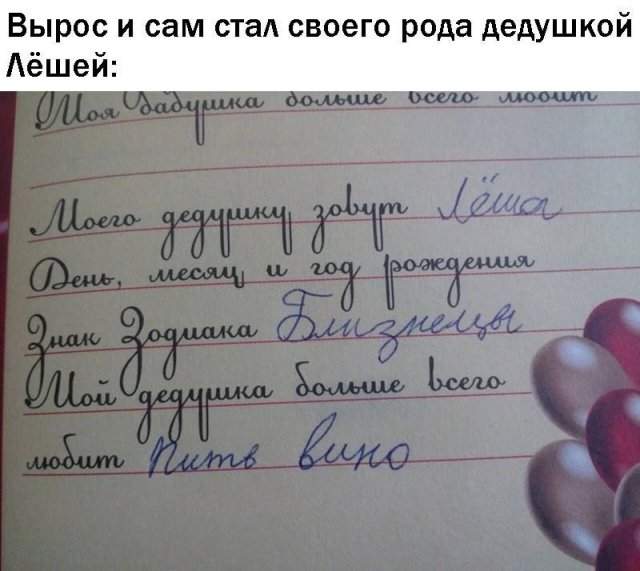 Вырос и сам стал своего рода дедушкой
Лёшей:
Моя бабушка больше всего любит
Моего дедушку зовут Лёша
День, месяц и год рождения
Знак Зодиака Близнецы
Мой дедушка больше всего
любит Пить вино